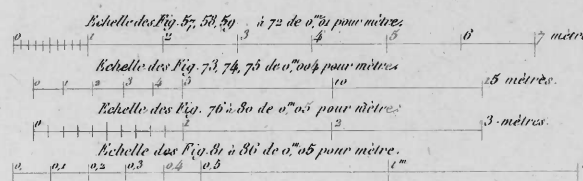 Echelle des Fig. 57, 58, 59 à 72 de 0,m01 pour mètre.
0 1 2 3 4 5 6 7 mètres
Echelle des Fig. 73, 74, 75 de 0,m004 pour mètre.
0 1 2 3 4 5 10 15 mètres.
Echelle des Fig. 76 à 80 de 0,m05 pour mètre.
0 1 2 3 mètres.
Echelle des Fig. 81 à 86 de 0,m05 pour mètre.
0, 0,1 0,2 0,3 0,4 0,5 1m